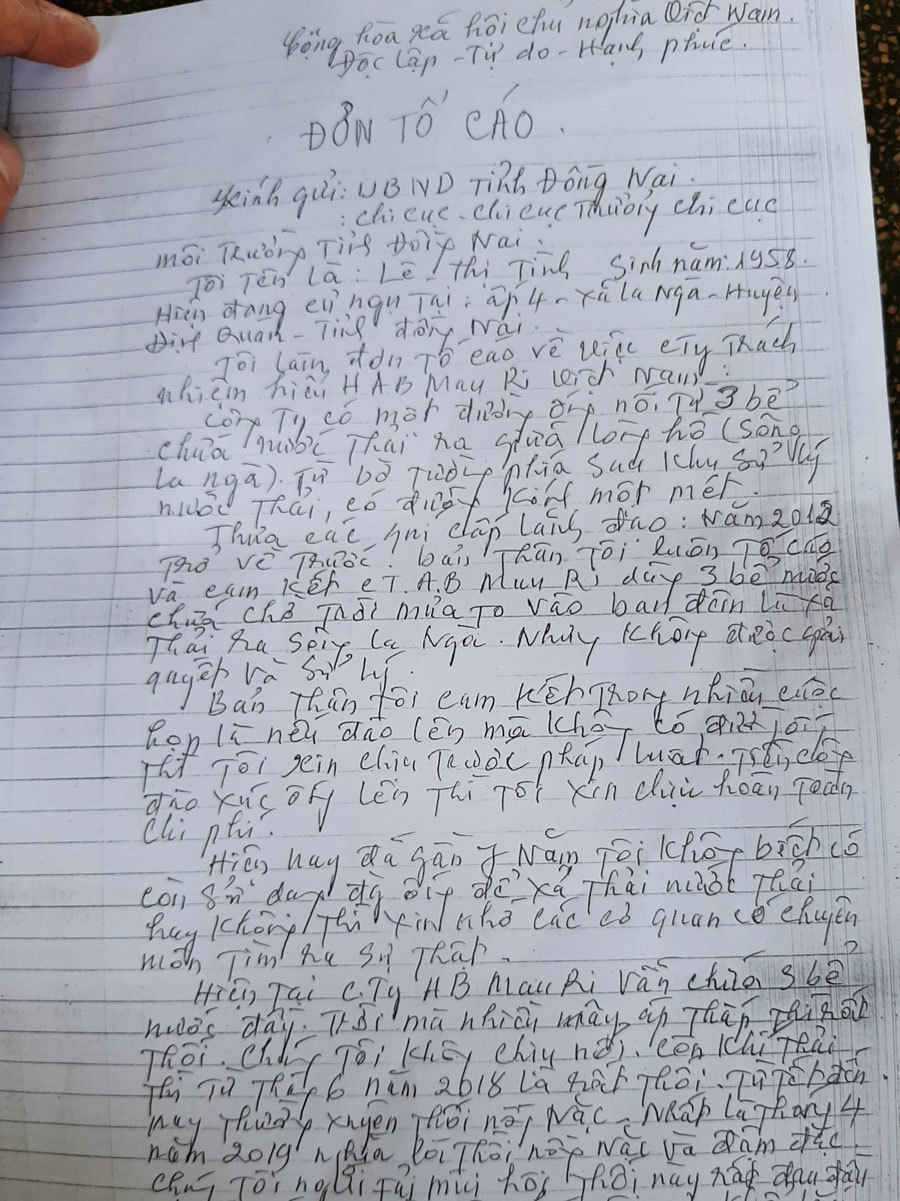 Cộng hòa xã hội chủ nghĩa Việt Nam.
Độc lập - Tự do - Hạnh phúc.
ĐƠN TỐ CÁO.
Kính gửi: UBND Tỉnh Đồng Nai.
: chi cục - chi cục Trưởng chi cục
môi Trường Tỉnh Đồng Nai.
Tôi Tên là: Lê Thị Tình Sinh năm: 1958.
Hiện đang cư ngụ Tại: ấp 4 - xã La Ngà - Huyện
Định Quán - Tỉnh đồng Nai.
Tôi làm đơn Tố cáo về việc cTy Trách
nhiệm hữu H AB Mau Ri Việt Nam:
Công Ty có một đường ống nối Từ 3 bể
chứa nước Thải ra giữa lòng hồ (Sông
La ngà). Từ bờ Tường phía Sau Khu Sử lý
nước Thải, có đường Kính một mét.
Thưa các cấp lãnh đạo: Năm 2012
Trở về Trước. bản Thân Tôi luôn Tố cáo
và cam Kết cT.A.B Mau Ri 3 bể nước
chứa chờ Trời mưa To vào ban đêm là xả
Thải ra Sông La Ngà. Nhưng Không được giải
quyết và Sử lý.
Bản Thân Tôi cam Kết Trong nhiều cuộc
họp là nếu đào lên mà Không có
Thì Tôi xin chịu Trước pháp luật.
đào xúc ống lên Thì Tôi xin chịu hoàn Toàn
chi phí.
Hiện nay đã gần 7 Năm Tôi Không biết có
còn Sử dụng ống để xả Thải nước Thải
hay Không Thì xin nhờ các cơ quan có chuyên
môn Tìm ra Sự Thật.
Hiện Tại C.Ty AB Mau Ri vẫn chứa 3 bể
nước đầy. Trời mà nhiều mây áp Thấp Thì rất
Thối. Chúng Tôi Không chịu nổi. Còn Khí Thải
Thì Từ Tháng 6 năm 2018 là rất Thối. Từ Tết đến
nay Thường xuyên Thối nồng Nặc. Nhất là Tháng 4
năm 2019 lối Thối nồng Nặc và đậm đặc.
Chúng Tôi ngửi mùi hôi Thối này rất đau đầu